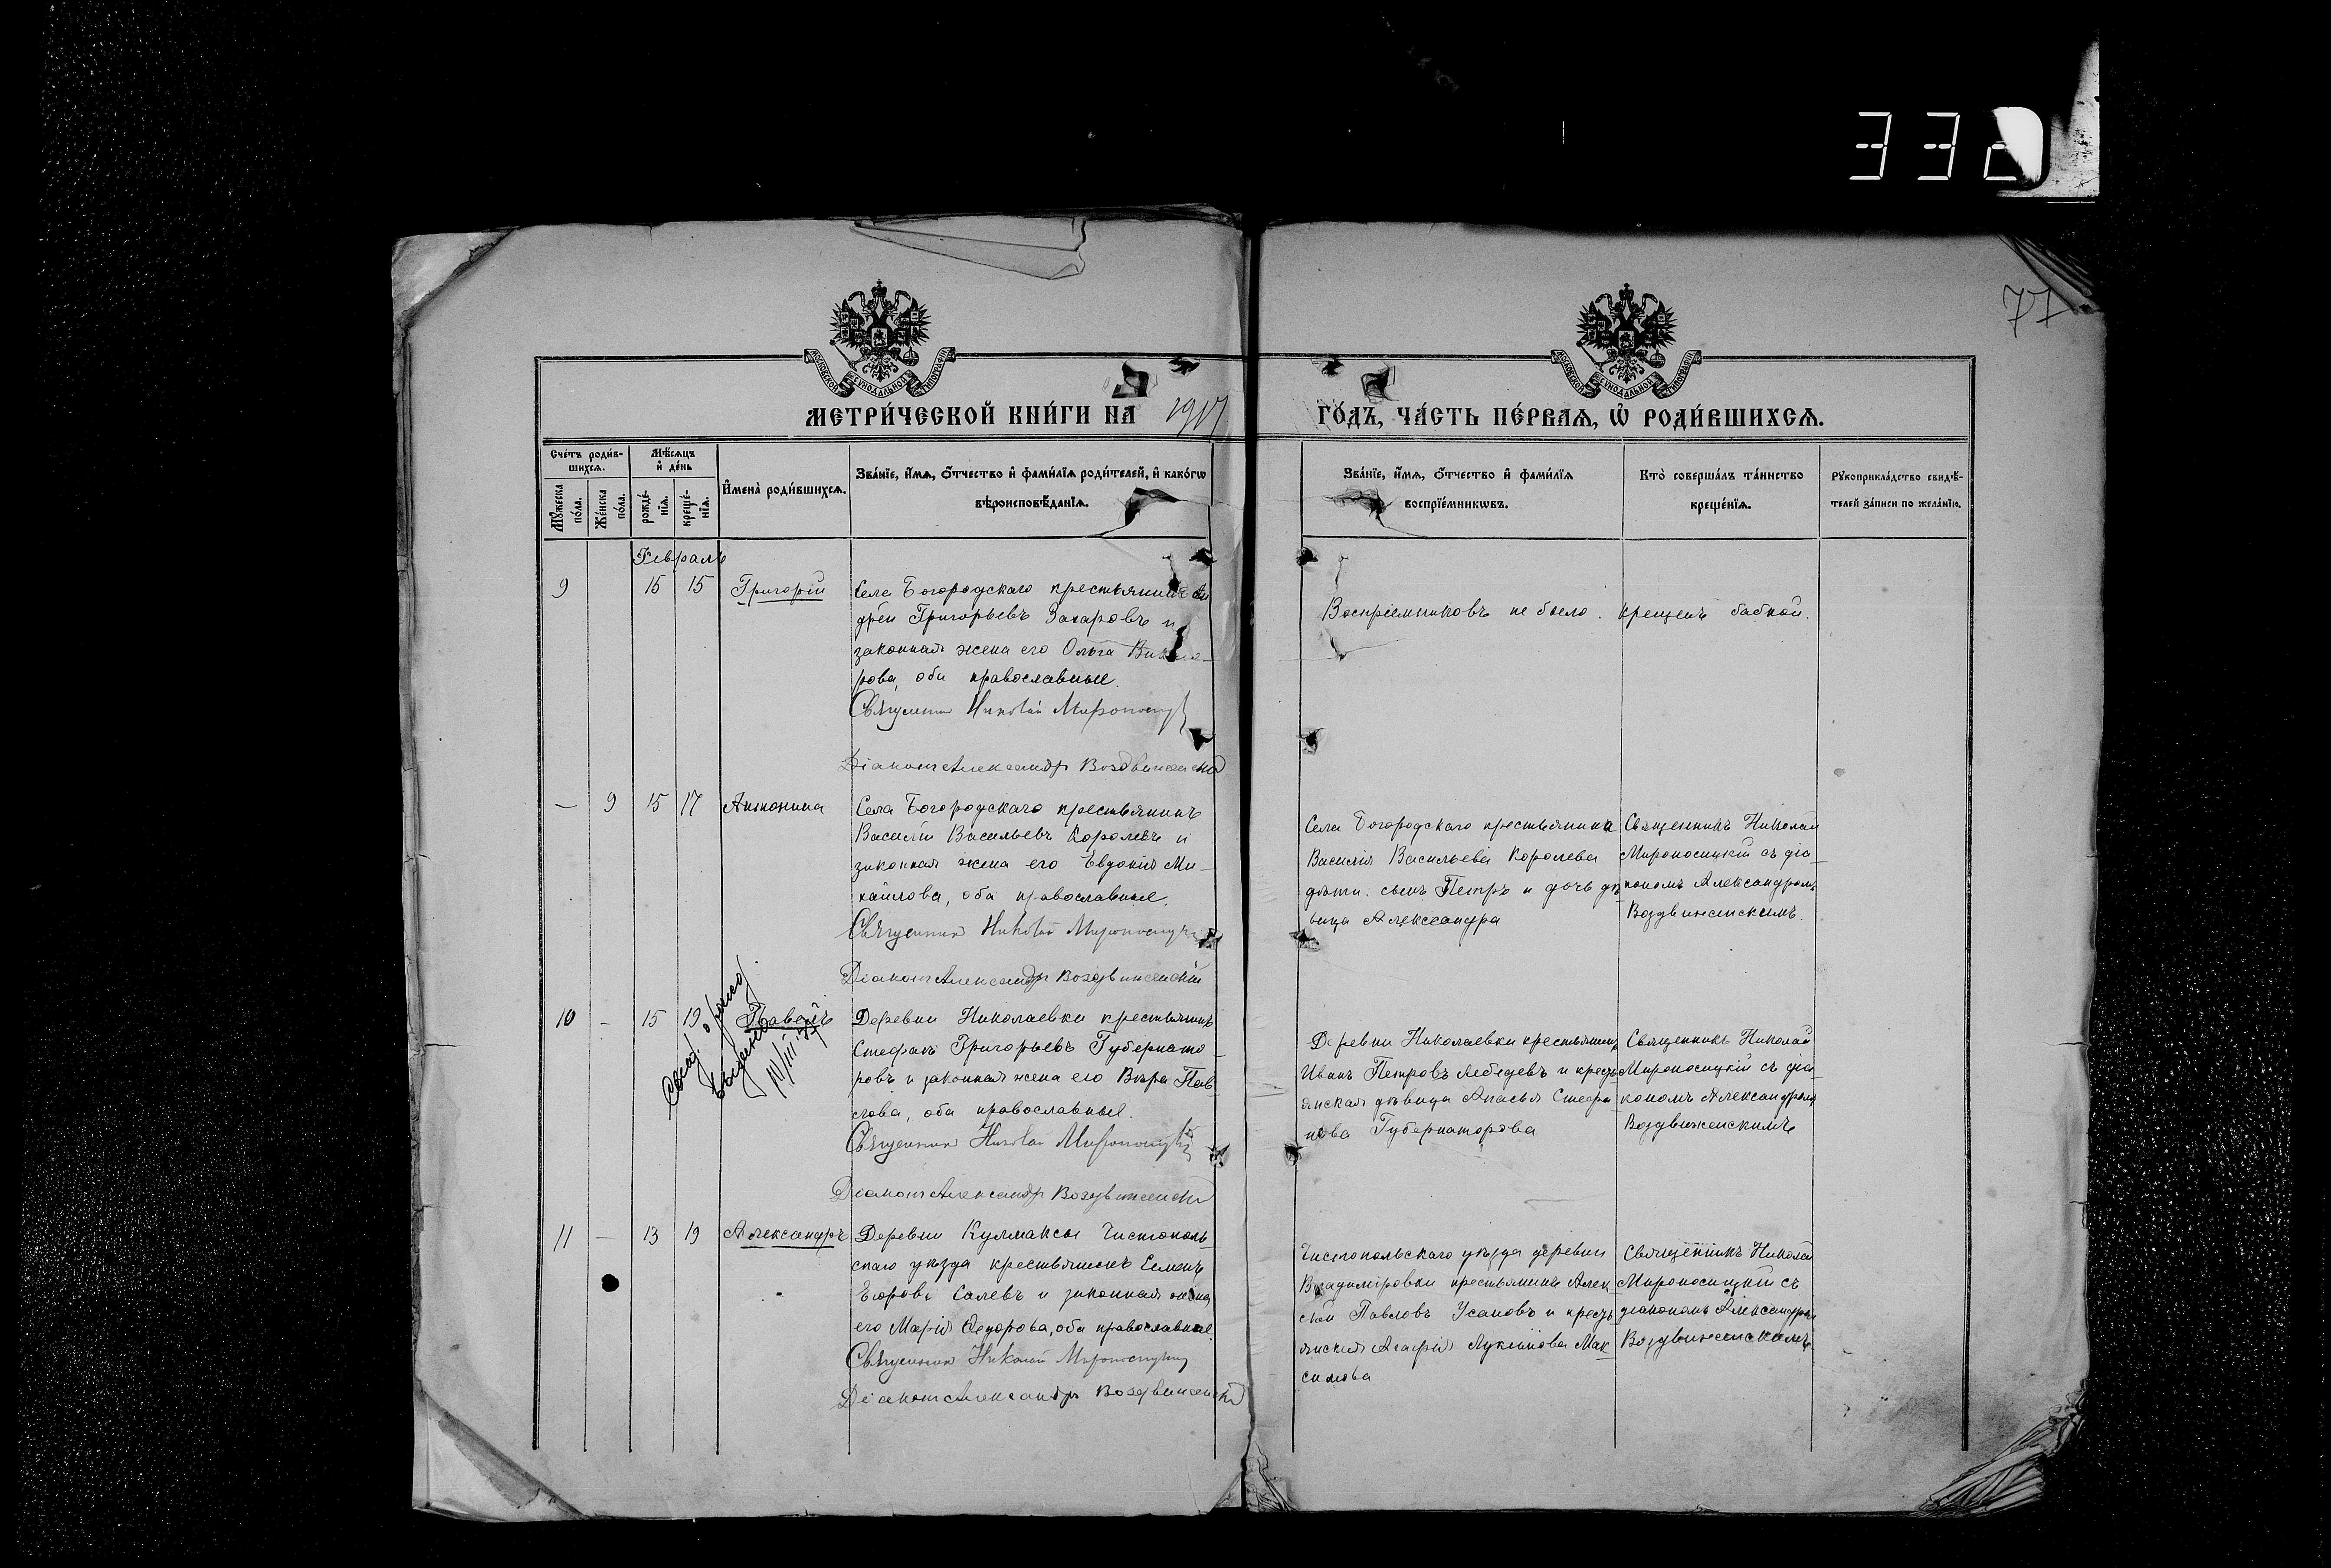 332
77
МОСКОВСКОЙ СѴНОДАЛЬНОЙ ТИПОГРАФІИ
МОСКОВСКОЙ СѴНОДАЛЬНОЙ ТИПОГРАФІИ
МЕТРИ́ЧЕСКОЙ КНИ́ГИ НА 1917 ГО́ДЪ, ЧА́СТЬ ПЕ́РВАѦ, Ѡ҆ РОДИ́ВШИХСѦ.
Сче́тъ роди́в-
шихсѧ.
Мѣ́сѧцъ
и҆ де́нь
Мꙋ́жеска по́ла.
Же́нска по́ла.
рожде́-
нїѧ.
креще́-
нїѧ.
И҆мена̀ роди́вшихсѧ.
Зва́нїе, и҆́мѧ, ѻ҆́тчество и҆ фами́лїѧ роди́телей, и҆ како́гѡ
вѣроисповѣ́данїѧ.
Зва́нїе, и҆́мѧ, ѻ҆́тчество и҆ фами́лїѧ
воспрїе́мникѡвъ.
Кто̀ соверша́лъ та́инство
креще́нїѧ.
Рꙋкоприкла́дство свидѣ́-
телей за́писи по жела́нїю.
Февраль
9 15 15 Григорій
Села Богородскаго крестьянинъ Ан
дрей Григорьевъ Захаровъ и
законная жена его Ольга
рова, оба православные.
Священник Николай Мироносицкій
Діаконъ Александръ Воздвиженскій
Воспріемниковъ не было.
крещенъ бабкой.
— 9 15 17 Антонина
Села Богородскаго крестьянинъ
Василій Васильевъ Королевъ и
законная жена его Евдокія Ми-
хайлова, оба православные.
Священник Николай Мироносицкій
Діаконъ Александръ Воздвиженскій
Села Богородскаго крестьянина
Василія Васильева Королева
дѣти: сынъ Петръ и дочь дѣ
вица Александра
Священникъ Николай
Мироносицкій съ діа-
кономъ Александромъ
Воздвиженскимъ.
10 - 15 19 Павелъ
выдано
Деревни Николаевки крестьянинъ
Стефанъ Григорьевъ Губернато-
ровъ и законная жена его Вѣра Пав
лова, оба православные.
Священник Николай Мироносицкій
Діаконъ Александръ Воздвиженскій
Деревни Николаевки крестьянинъ
Иванъ Петровъ Лебедевъ и кресть
янская дѣвица Анасья Стефа-
нова Губернаторова
Священникъ Николай
Мироносицкій съ діа-
кономъ Александромъ
Воздвиженскимъ
11 — 13 19 Александръ
Деревни Кулмаксы Чистополь-
скаго уѣзда крестьянинъ
Егоровъ Салевъ и законная жена
его Марія Ѳедорова, оба православные.
Священник Николай Мироносицкій
Діаконъ Александръ Воздвиженскій
Чистопольскаго уѣзда деревни
Владиміровки крестьянинъ Алек-
сѣй Павловъ Усановъ и кресть
янская Агафія Лукіянова Мак-
симова
Священникъ Николай
Мироносицкій съ
діакономъ Александром
Воздвиженскимъ